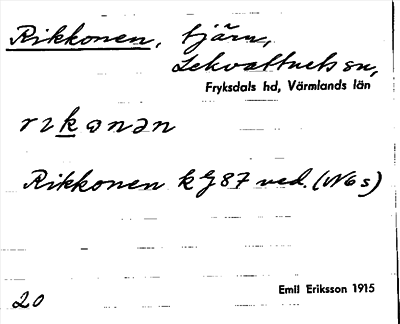 Rikkonen, tjärn,
Lekvattnets sn,
Fryksdals hd, Värmlands län
Rikkonen kg 87 ved. (N6s)
20
Emil Eriksson 1915